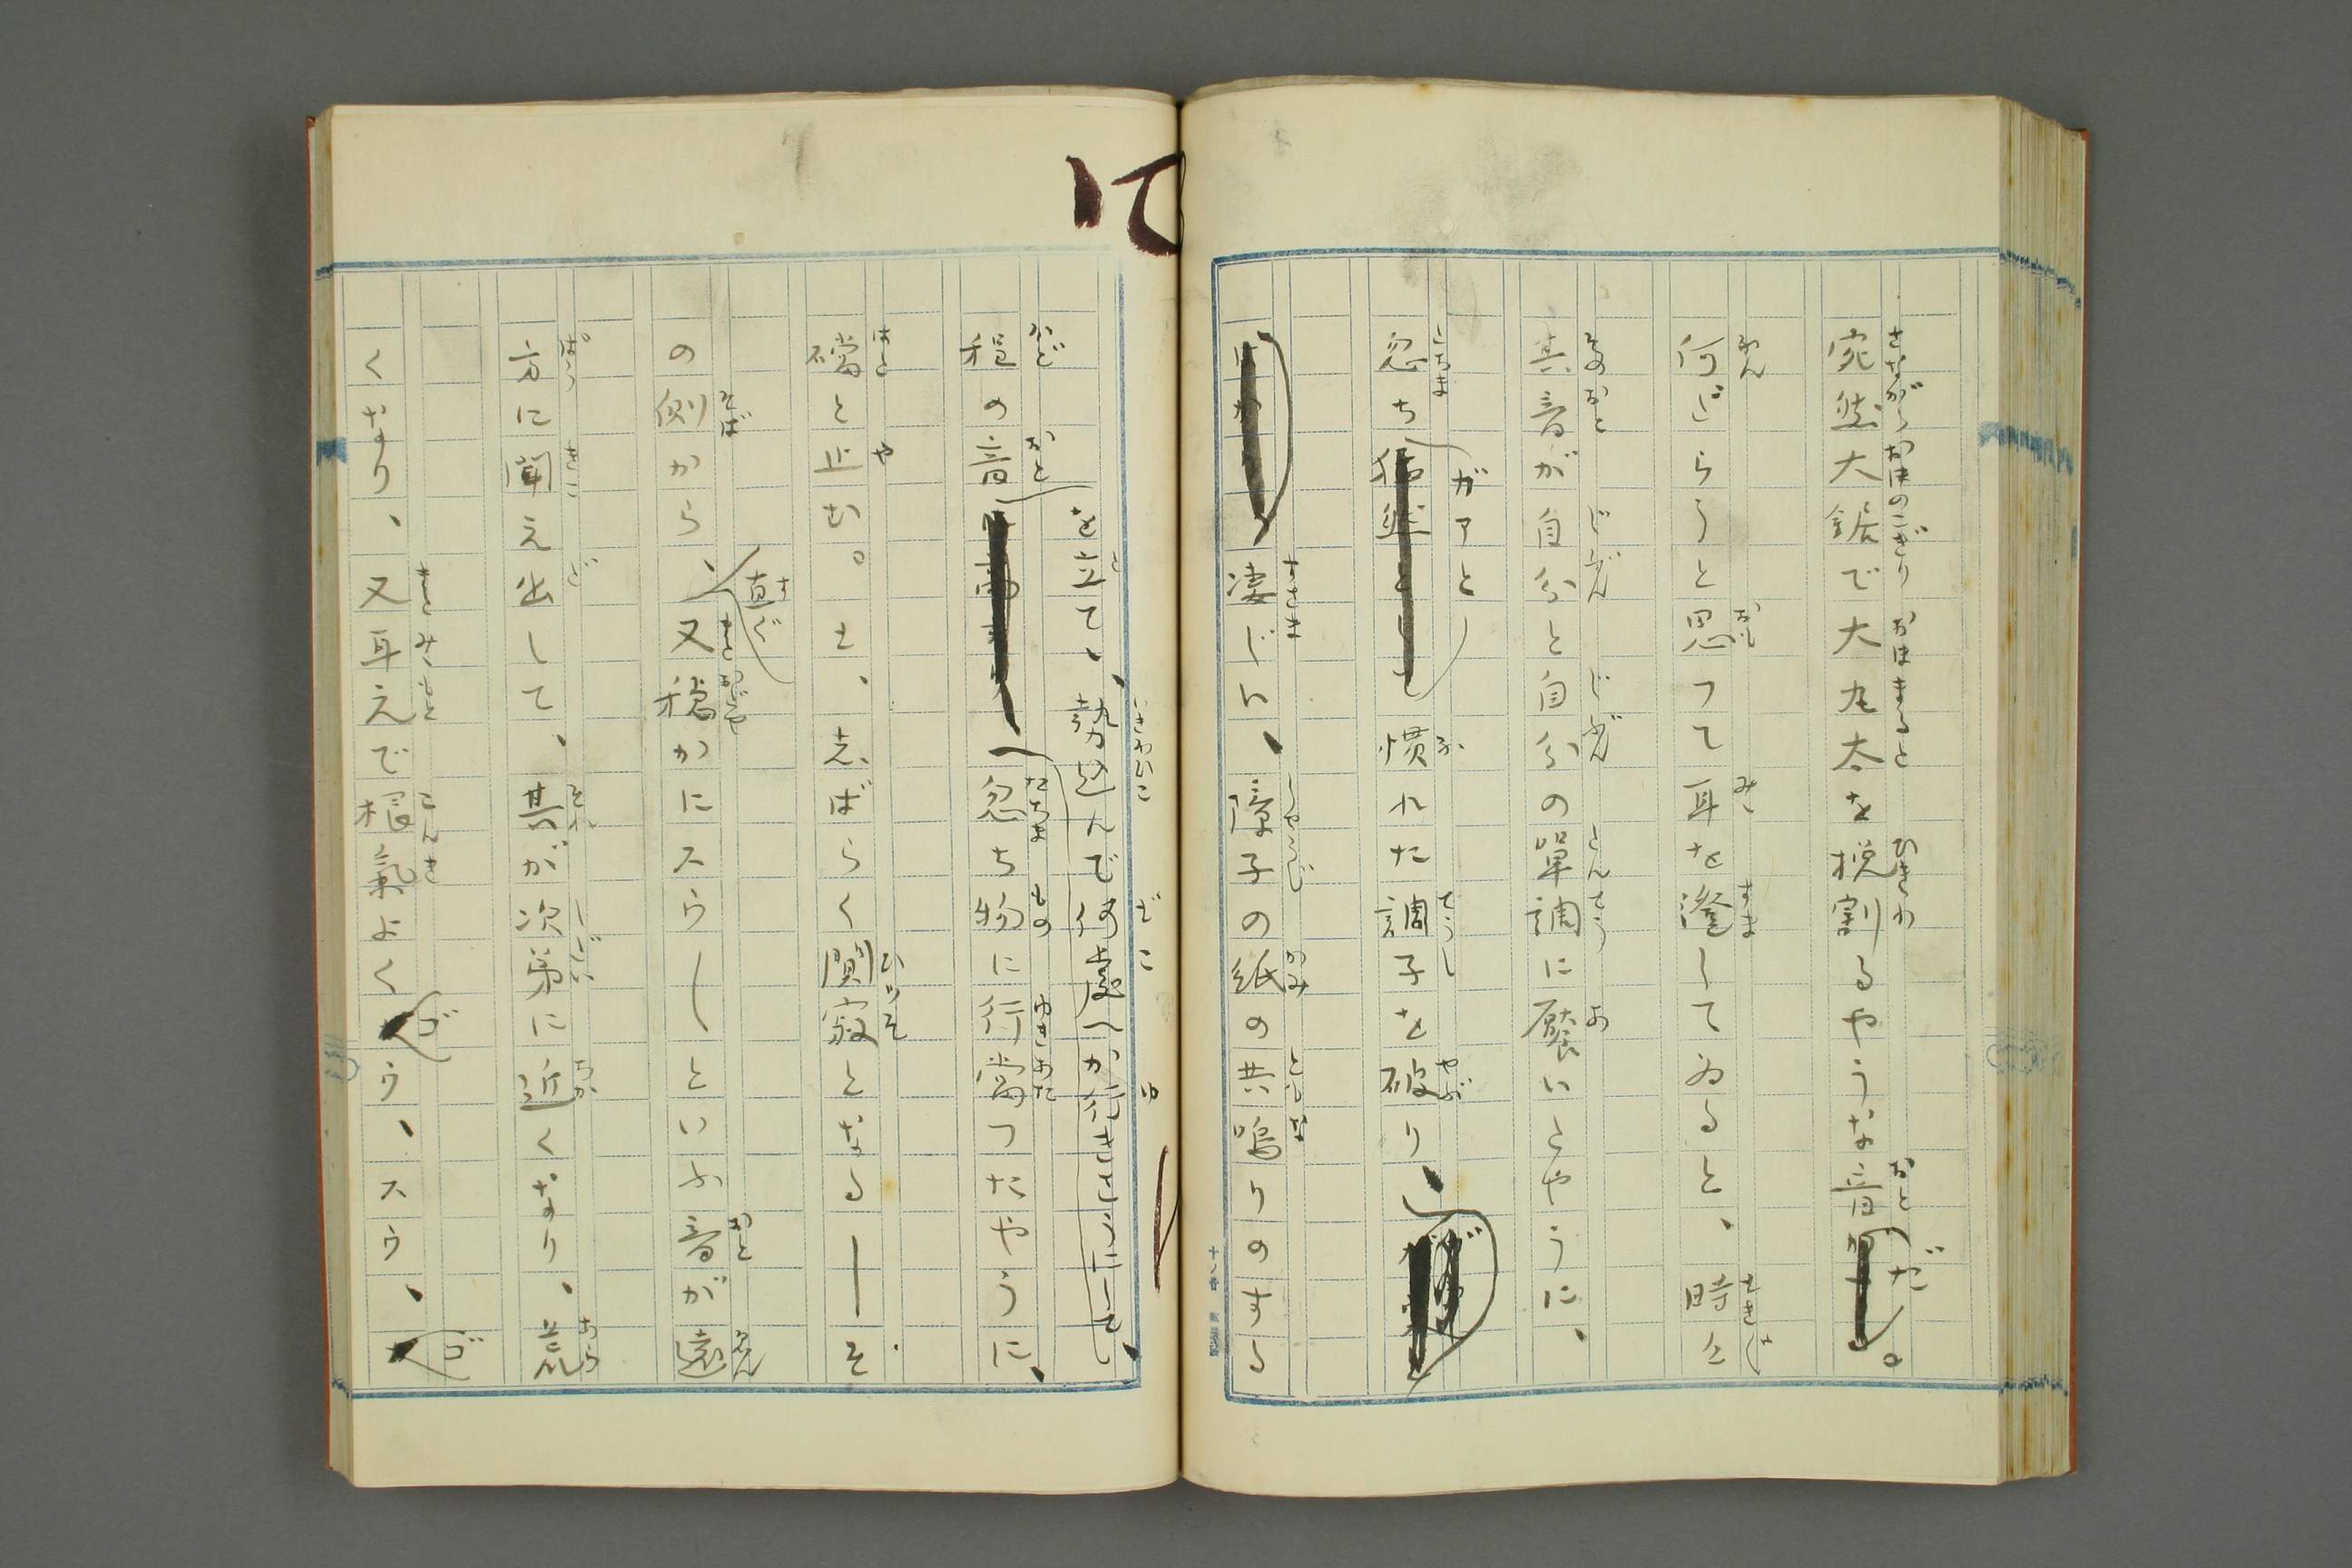 宛然大鋸で大丸太を挽割るやうな音だ。
何だらうと思つて耳を澄してゐると、時々
其音が自分と自分の單調に厭いたやうに、
忽ちガアと慣れた調子を破り、
凄じい、障子の紙の共鳴りのする
程の音を立てゝ、勢込んで何處へか行きさうにして、忽ち物に行當つたやうに、
礑と止む。と、志ばらく闃寂となる――そ
の側から、直ぐ又穩かにスウーといふ音が遠
方に聞え出して、其が次第に近くなり、荒
くなり、又耳元で根氣よくゴウ、スウ、ゴ